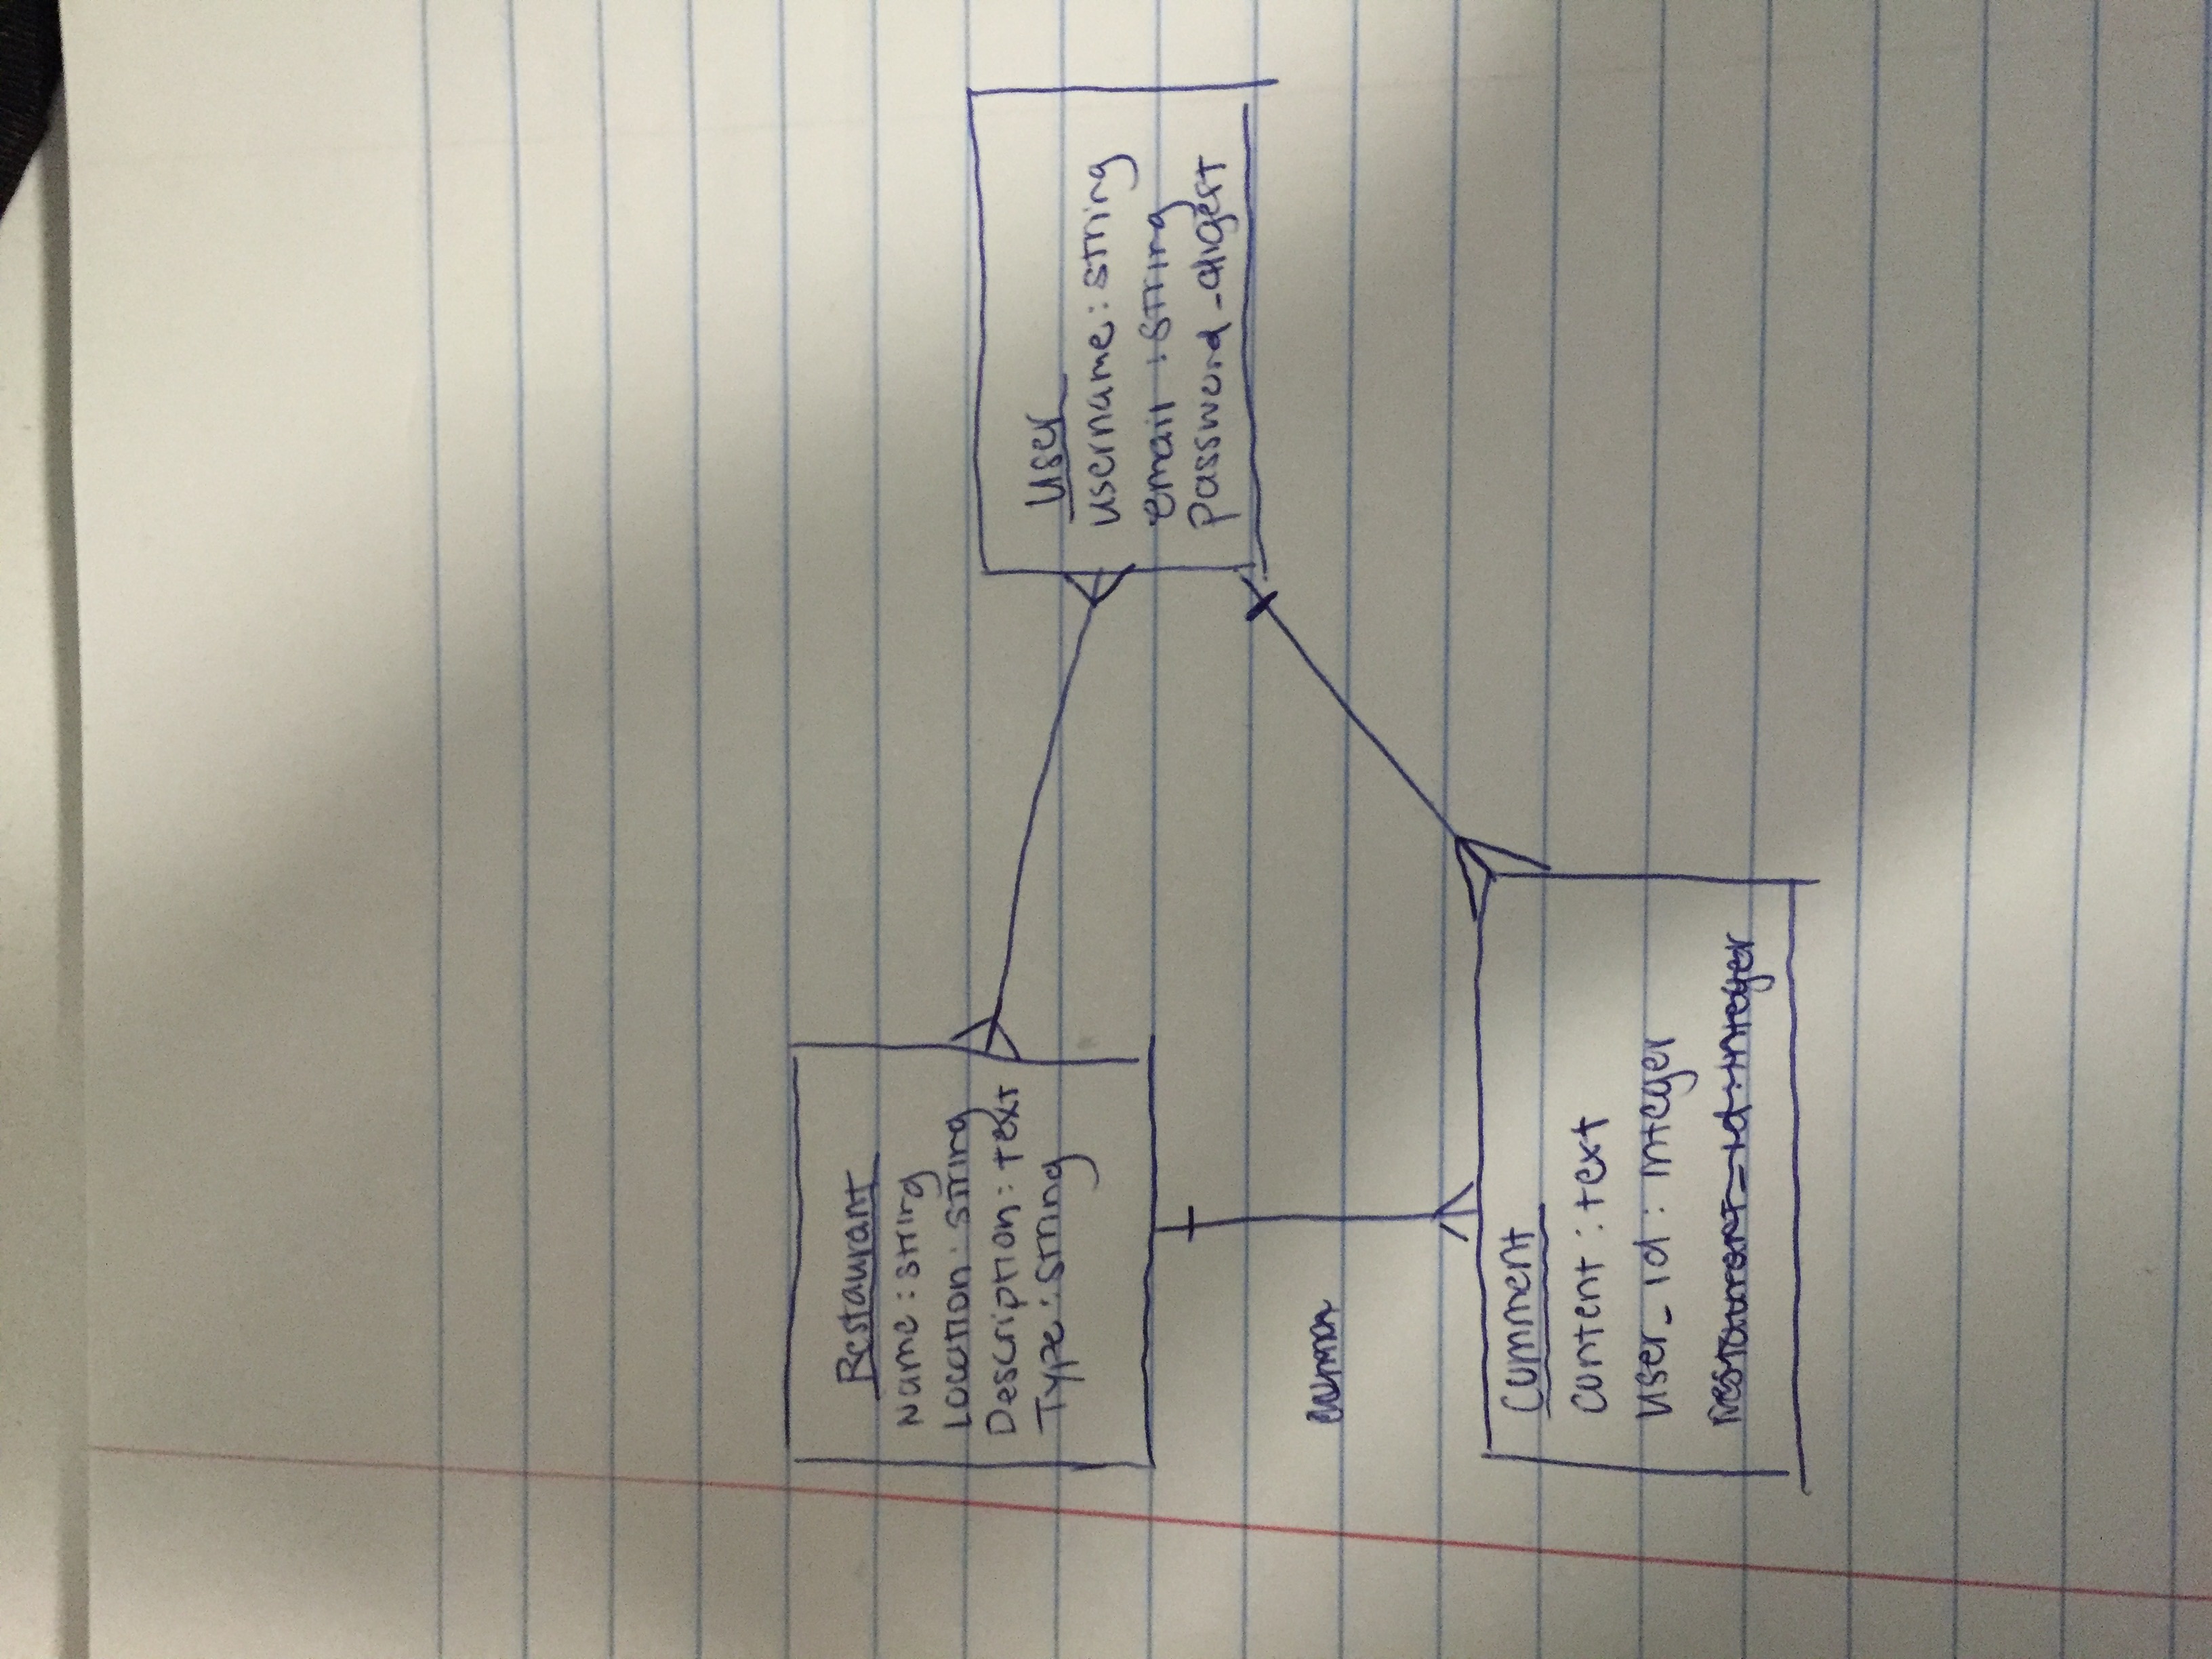 Restaurant
Name : string
Location : string
Description : text
Type : string
User
username : string
email : string
password_digest
Comment
content : text
user_id : integer
restaurant_id : integer